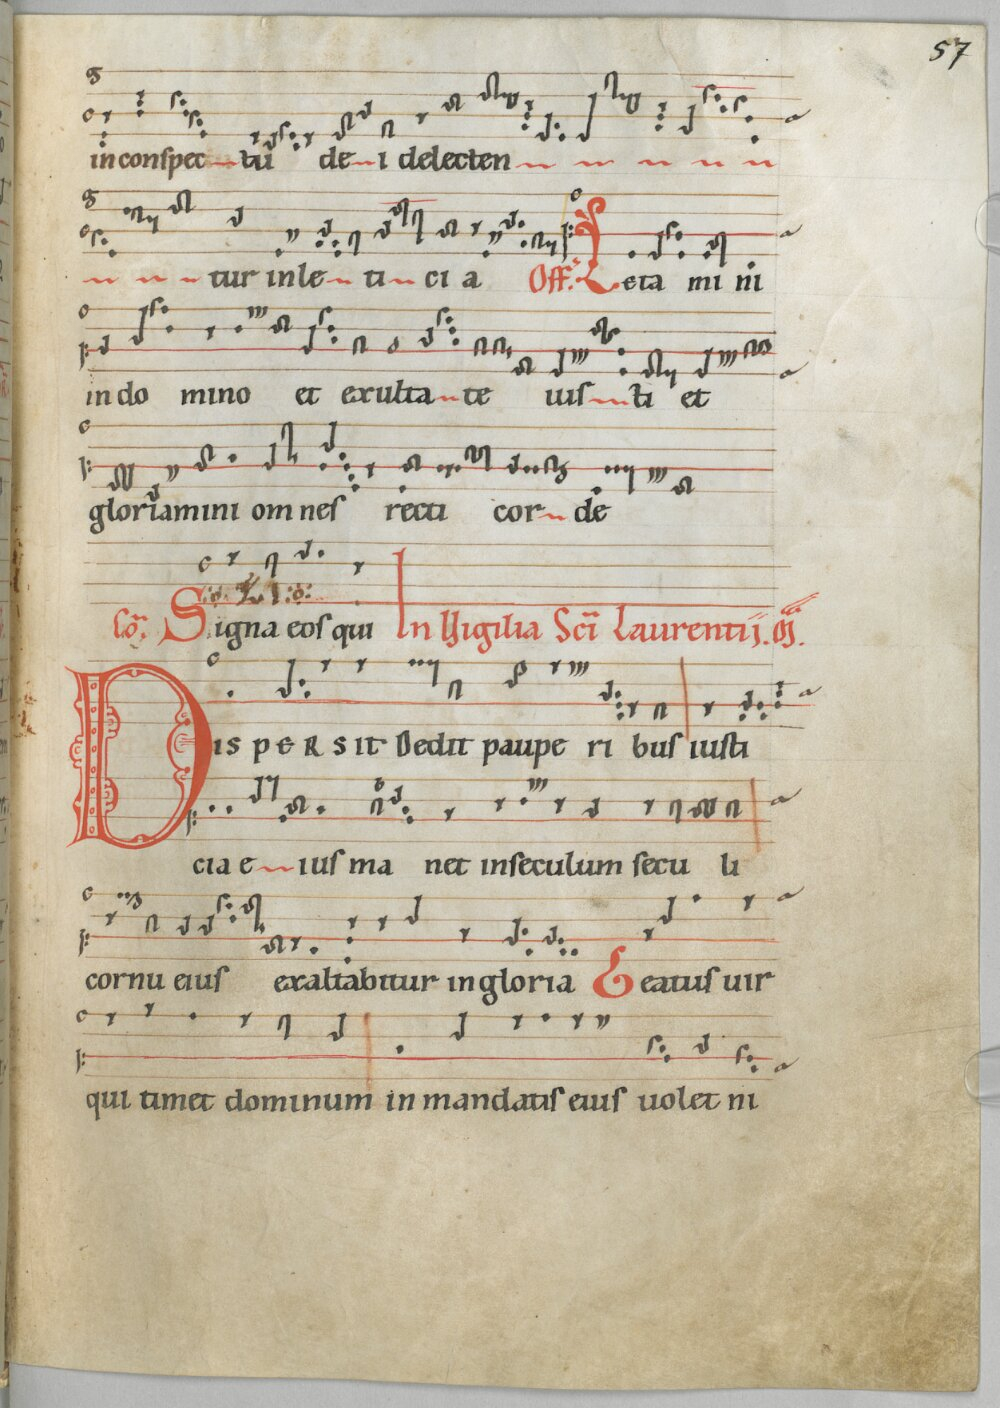 57
inconspec tu de i delecten
tur inle ti ci a Off. Leta mi ni
indo mino et exulta te uis ti et
gloriamini omnes recti cor de
Cō. Signa eos qui In Uigilia Sci Laurentij.
DISPERSIT Dedit paupe ri bus iusti
cia e ius ma net inseculum secu li
cornu eius exaltabitur in gloria Beatus uir
qui timet dominum in mandatis eius uolet ni